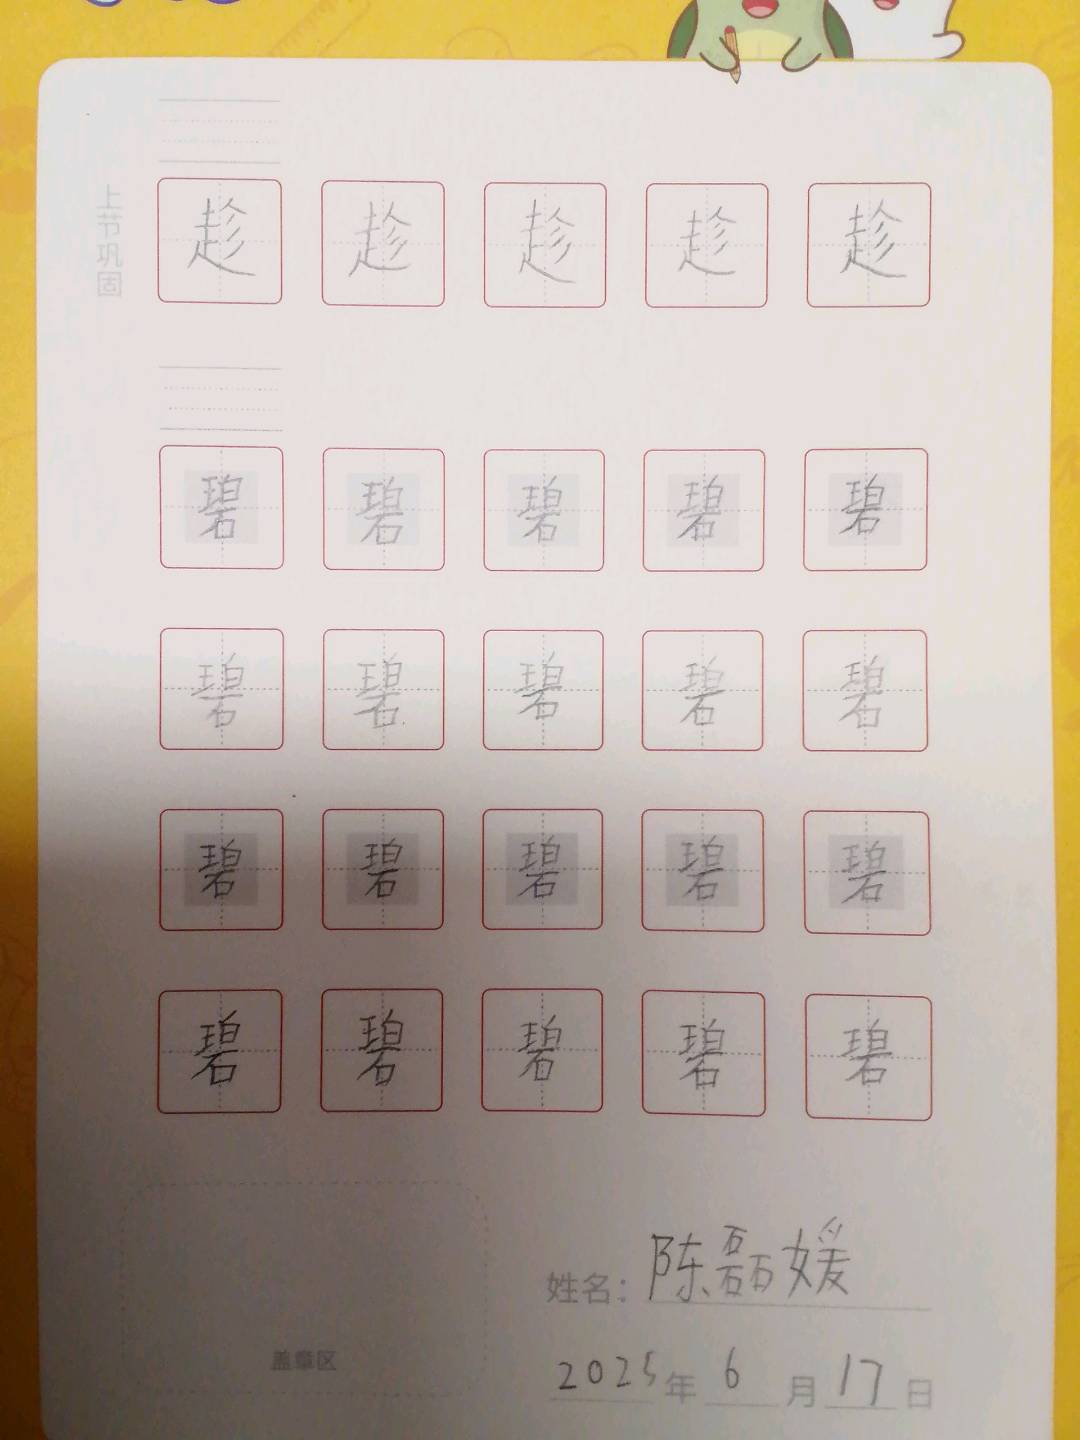 上节巩固
趁 趁 趁 趁 趁
碧 碧 碧 碧 碧
碧 碧 碧 碧 碧
碧 碧 碧 碧 碧
碧 碧 碧 碧 碧
姓名：陈磊媛
盖章区
2025年6月17日